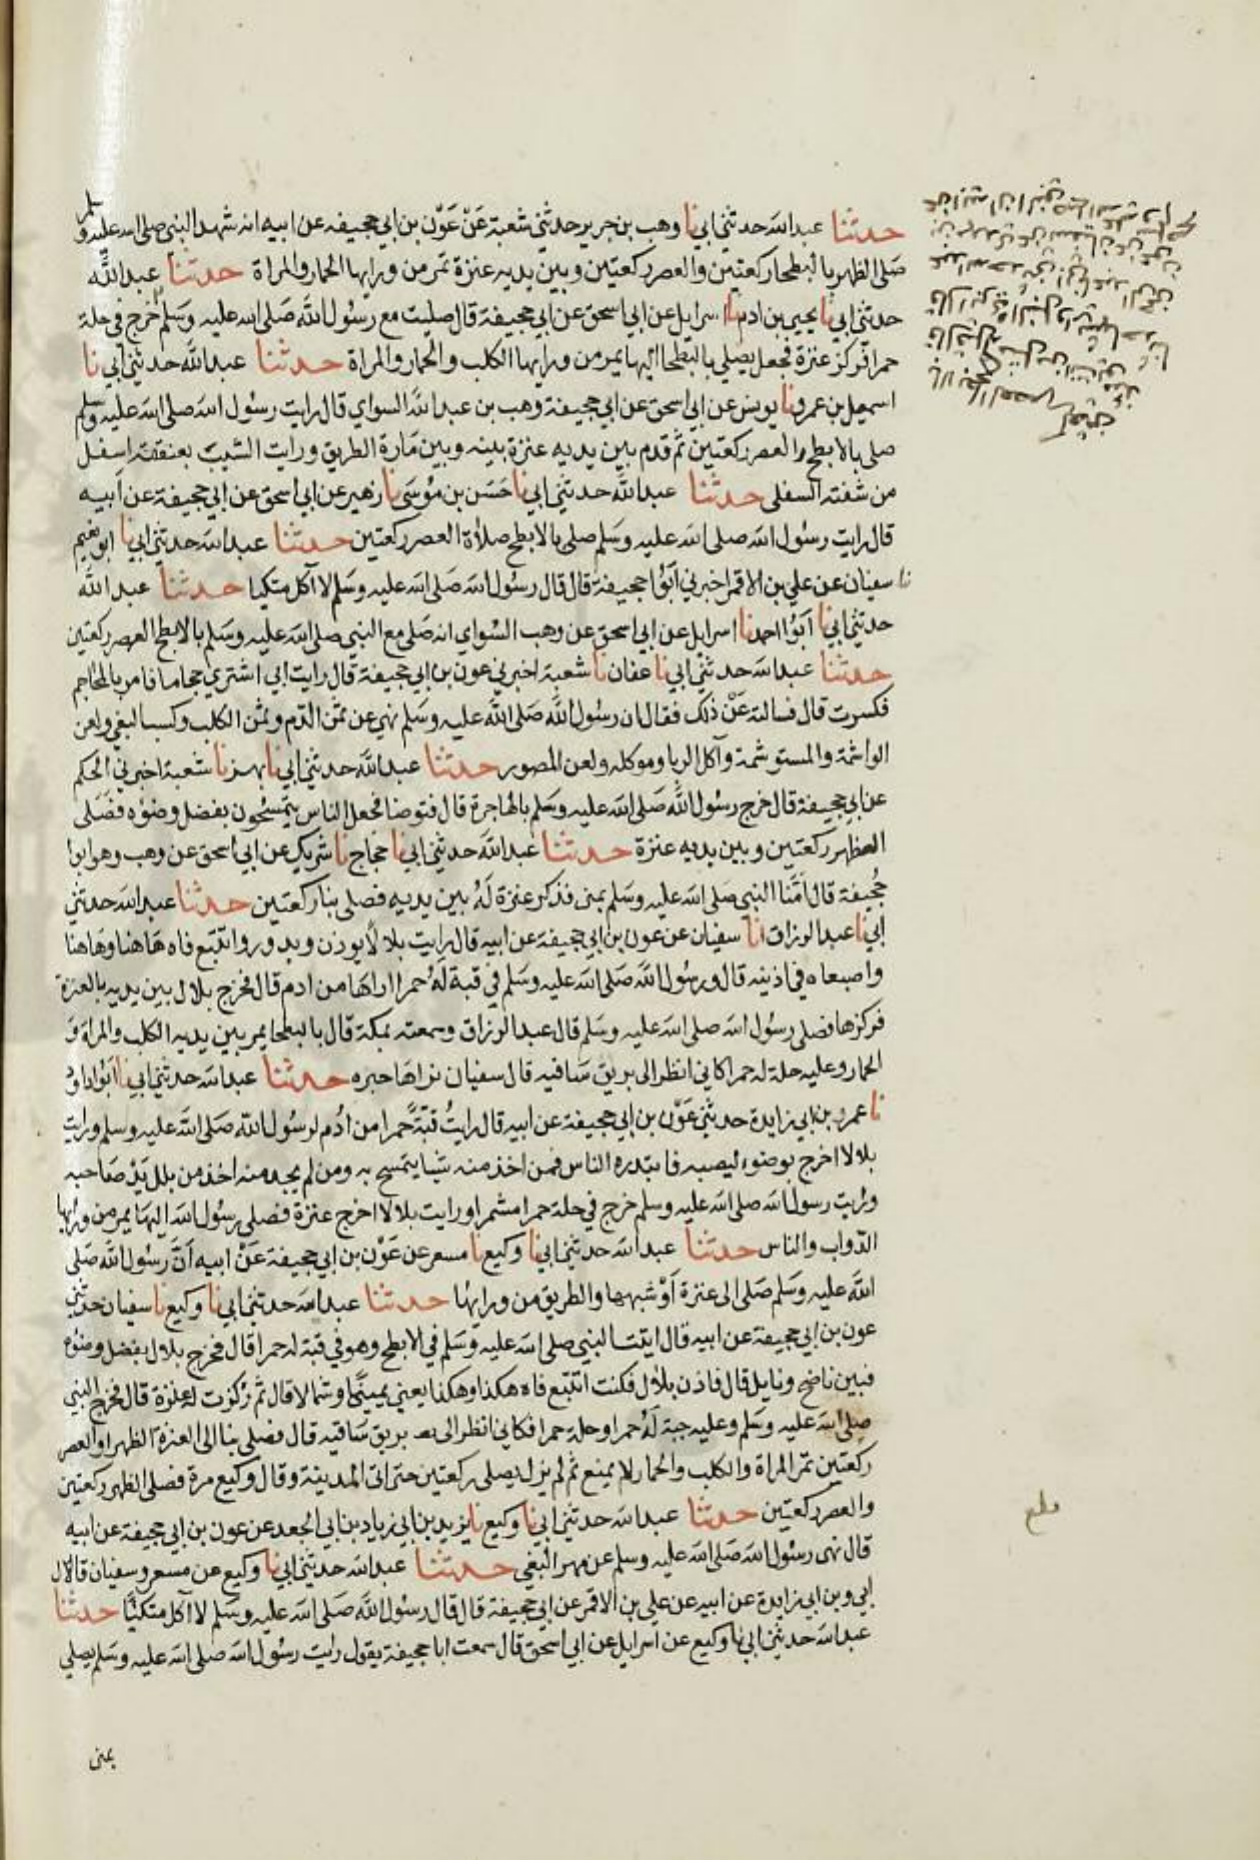 حدثنا عبد الله حدثني ابي نا وهب بن جرير حدثني شعبة عَنْ عَوْن بن ابي جحيفه عن ابيه انه شهد النبي صلى الله عليه وسلم
صلى الظهر بالبطحا ركعتين والعصر ركعتين وبين يديه عنزة تمر من ورايها الحمار والمراة حدثنا عبد الله
حدثني ابي نا يحيى بن ادم نا اسرايل عن ابي اسحق عن ابي جحيفة قال صليت مع رسول الله صلى الله عليه وسلم خرج في حلة
حمرا فركز عنزة فجعل يصلي بالبطحا اليها يمر من ورايها الكلب والحمار والمراة حدثنا عبد الله حدثني ابي نا
اسمعيل بن عمر نا يونس عن ابي اسحق عن ابي جحيفة وهب بن عبد الله السواي قال رايت رسول الله صلى الله عليه وسلم
صلى بالابطح العصر ركعتين ثم قدم بين يديه عنزة بينه وبين مارة الطريق ورايت الشيب بعنفقته اسفل
من شفته السفلى حدثنا عبد الله حدثني ابي نا حسن بن موسى نا زهير عن ابي اسحق عن ابي جحيفة عن ابيه
قال رايت رسول الله صلى الله عليه وسلم صلى بالابطح صلاة العصر ركعتين حدثنا عبد الله حدثني ابي نا ابو نعيم
نا سفيان عن علي بن الاقمر اخبرني ابوا جحيفة قال قال رسول الله صلى الله عليه وسلم لا آكل متكيا حدثنا عبد الله
حدثني ابي نا ابوا احمد نا اسرايل عن ابي اسحق عن وهب السواي انه صلى مع النبي صلى الله عليه وسلم بالابطح العصر ركعتين
حدثنا عبد الله حدثني ابي نا عفان نا شعبة اخبرني عون بن ابي جحيفة قال رايت ابي اشترى حجاما فامر بالمحاجم
فكسرت قال فسالته عن ذلك فقال ان رسول الله صلى الله عليه وسلم نهى عن ثمن الدم وثمن الكلب وكسب البغي ولعن
الواشمة والمستوشمة وآكل الربا وموكله ولعن المصور حدثنا عبد الله حدثني ابي نا بهز نا شعبة اخبرني الحكم
عن ابي جحيفة قال خرج رسول الله صلى الله عليه وسلم بالهاجرة قال فتوضا فجعل الناس يتمسحون بفضل وضوه فصلى
الظهر ركعتين وبين يديه عنزة حدثنا عبد الله حدثني ابي نا حجاج نا شريك عن ابي اسحق عن وهب وهو ابوا
جحيفة قال امنا النبي صلى الله عليه وسلم بمنى فذكر عنزة له بين يديه فصلى بنا ركعتين حدثنا عبد الله حدثني
ابي نا عبد الرزاق انا سفيان عن عون بن ابي جحيفة عن ابيه قال رايت بلالا يوذن ويدور واتتبع فاه هاهنا وهاهنا
واصبعاه في اذنيه قال ورسول الله صلى الله عليه وسلم في قبة له حمرا اراها من ادم قال فخرج بلال بين يديه بالعنزة
فركزها فصلى رسول الله صلى الله عليه وسلم قال عبد الرزاق وسمعته بمكة قال بالبطحا يمر بين يديه الكلب والمراة و
الحمار وعليه حلة له حمرا كاني انظر الى بريق ساقيه قال سفيان نراها حبره حدثنا عبد الله حدثني ابي نا ابوا داود
نا عمر بن ابي زايدة حدثني عون بن ابي جحيفة عن ابيه قال رايت قبة حمرا من ادم لرسول الله صلى الله عليه وسلم ورايت
بلالا اخرج بوضوء ليصبه فابتدره الناس فمن اخذ منه شيا يتمسح به ومن لم يجد منه اخذ من بلل يد صاحبه
ورايت رسول الله صلى الله عليه وسلم خرج في حلة حمرا مشمرا ورايت بلالا اخرج عنزة فصلى رسول الله اليها يمر من ورايها
الدواب والناس حدثنا عبد الله حدثني ابي نا وكيع نا مسعر عن عون بن ابي جحيفة عن ابيه ان رسول الله صلى
الله عليه وسلم صلى الى عنزة او شبهها والطريق من ورايها حدثنا عبد الله حدثني ابي نا وكيع نا سفيان حدثني
عون بن ابي جحيفة عن ابيه قال اتيت النبي صلى الله عليه وسلم في الابطح وهو في قبة له حمرا قال فخرج بلال بفضل وضوه
فبين ناضح ونايل قال فاذن بلال فكنت اتتبع فاه هكذا وهكذا يعني يمينا وشمالا قال ثم ركزت له عنزة قال فخرج النبي
صلى الله عليه وسلم وعليه جبة له حمرا وحلة حمرا فكاني انظر الى بريق ساقيه قال فصلى بنا الى العنزة الظهر او العصر
ركعتين تمر المراة والكلب والحمار لا يمنع ثم لم يزل يصلي ركعتين حتى اتى المدينة وقال وكيع مرة فصلى الظهر ركعتين
والعصر ركعتين حدثنا عبد الله حدثني ابي نا وكيع نا يزيد بن ابي زياد بن ابي الجعد عن عون بن ابي جحيفة عن ابيه
قال نهى رسول الله صلى الله عليه وسلم عن مهر البغي حدثنا عبد الله حدثني ابي نا وكيع عن مسعر وسفيان قال
ابي وبن ابي زايدة عن ابيه عن علي بن الاقمر عن ابي جحيفة قال قال رسول الله صلى الله عليه وسلم لا آكل متكيا حدثنا
عبد الله حدثني ابي نا وكيع عن اسرايل عن ابي اسحق قال سمعت ابا جحيفة يقول رايت رسول الله صلى الله عليه وسلم يصلي
بمنى